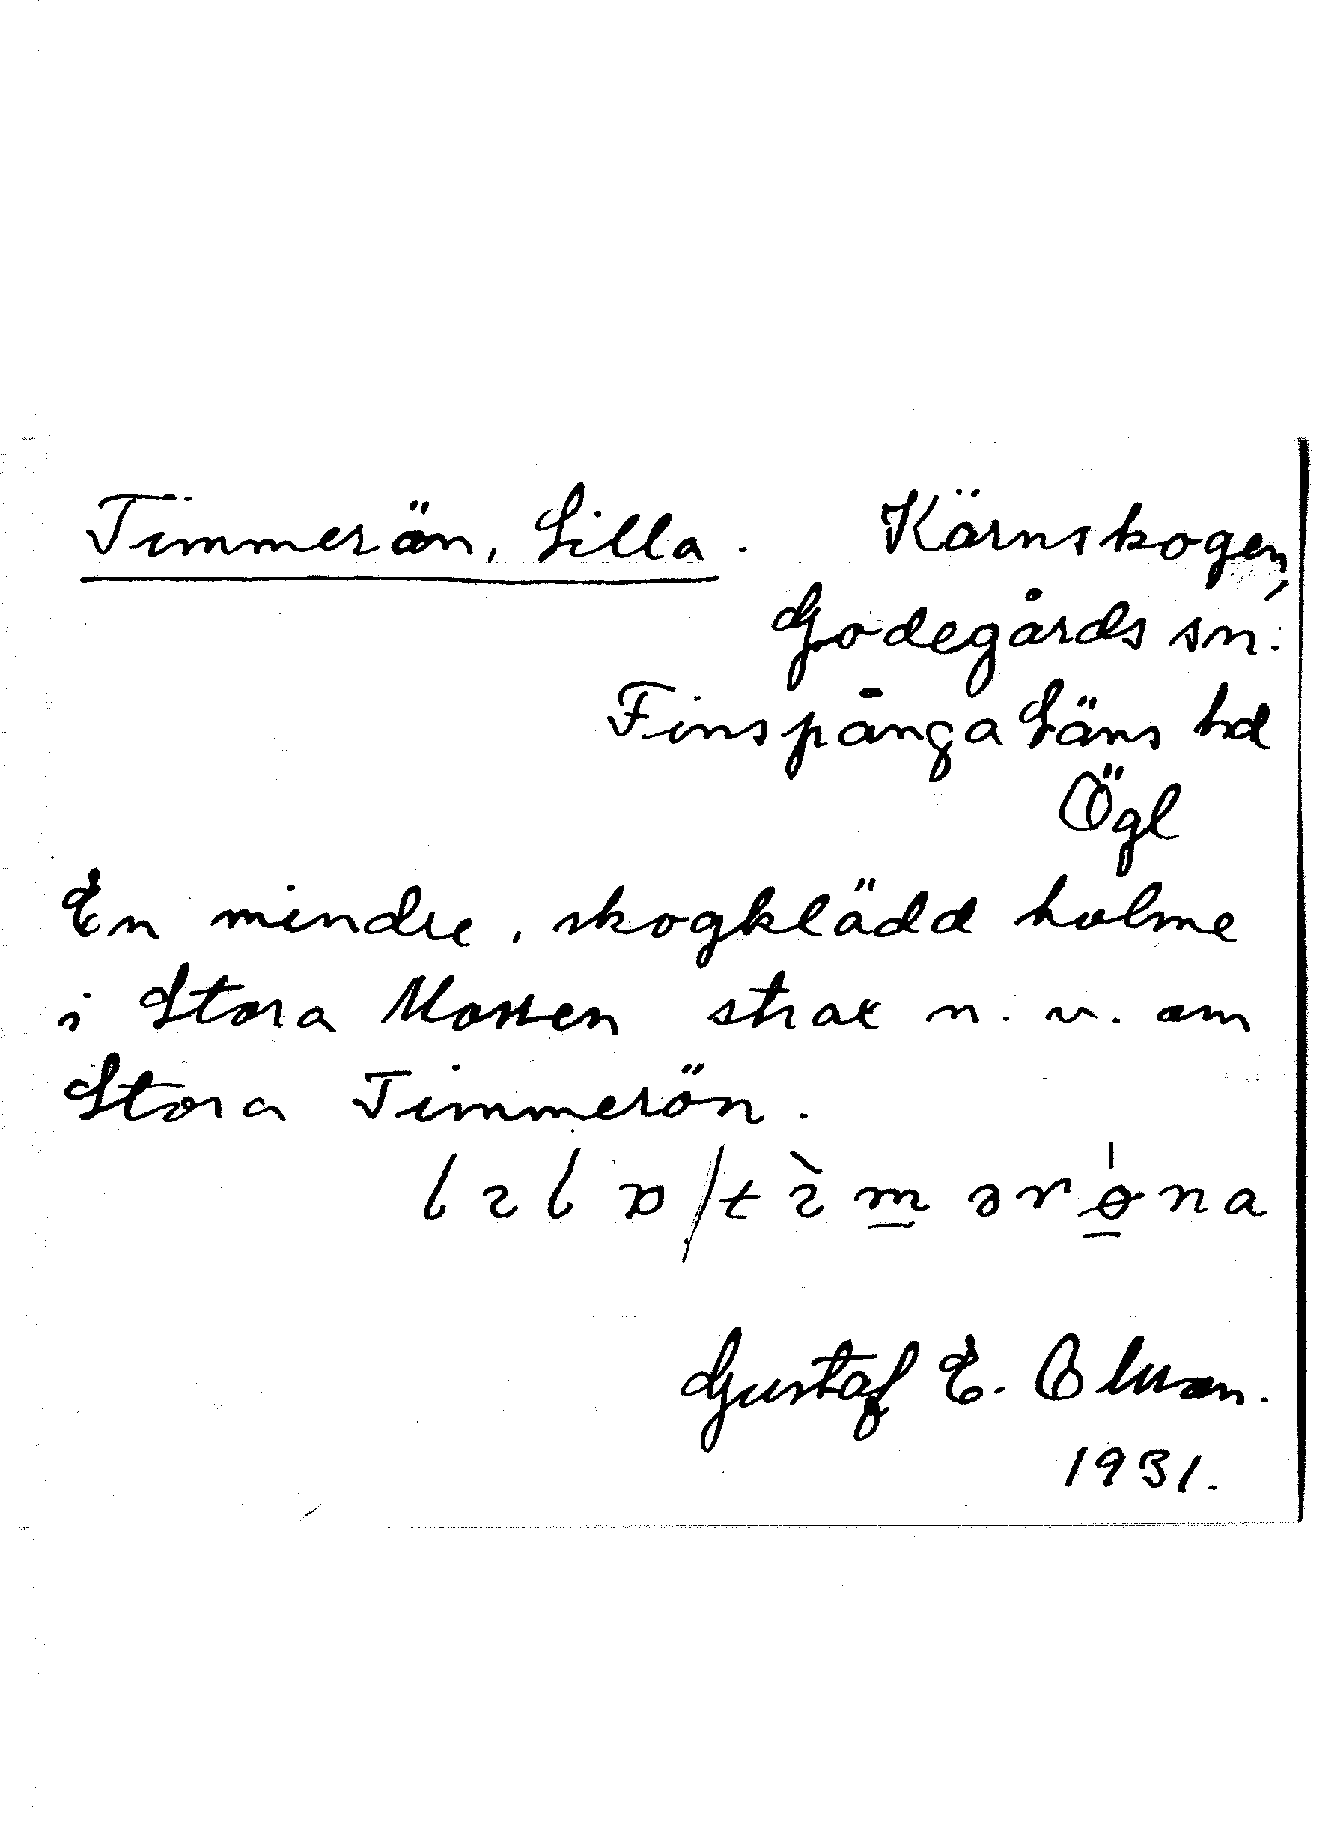 Timmerön, Lilla. Kärnskogen,
Godegårds sn.
Finspånga Läns hd
Ögl
En mindre, skogklädd holme
i Stora Mossen strax n. v. om
Stora Timmerön.
Gustaf E. Olsson.
1931.